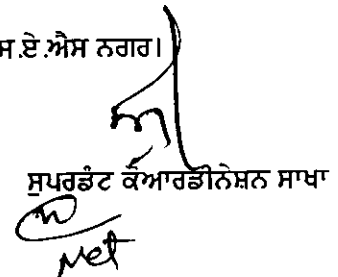 ਸ.ਏ.ਐਸ ਨਗਰ।
ਸੁਪਰਡੰਟ ਕੋਆਰਡੀਨੇਸ਼ਨ ਸਾਖਾ